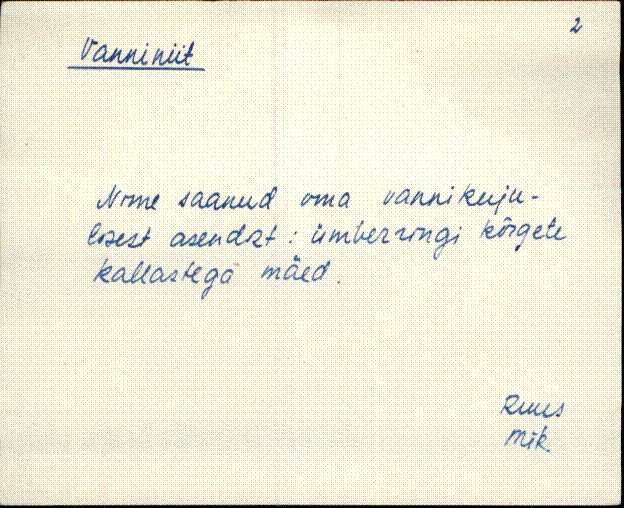 2
Vanniniit
Nime saanud oma vannikuju-
lisest asendist : ümberringi kõrgete
kallastega mäed.
Ruus
Mik.